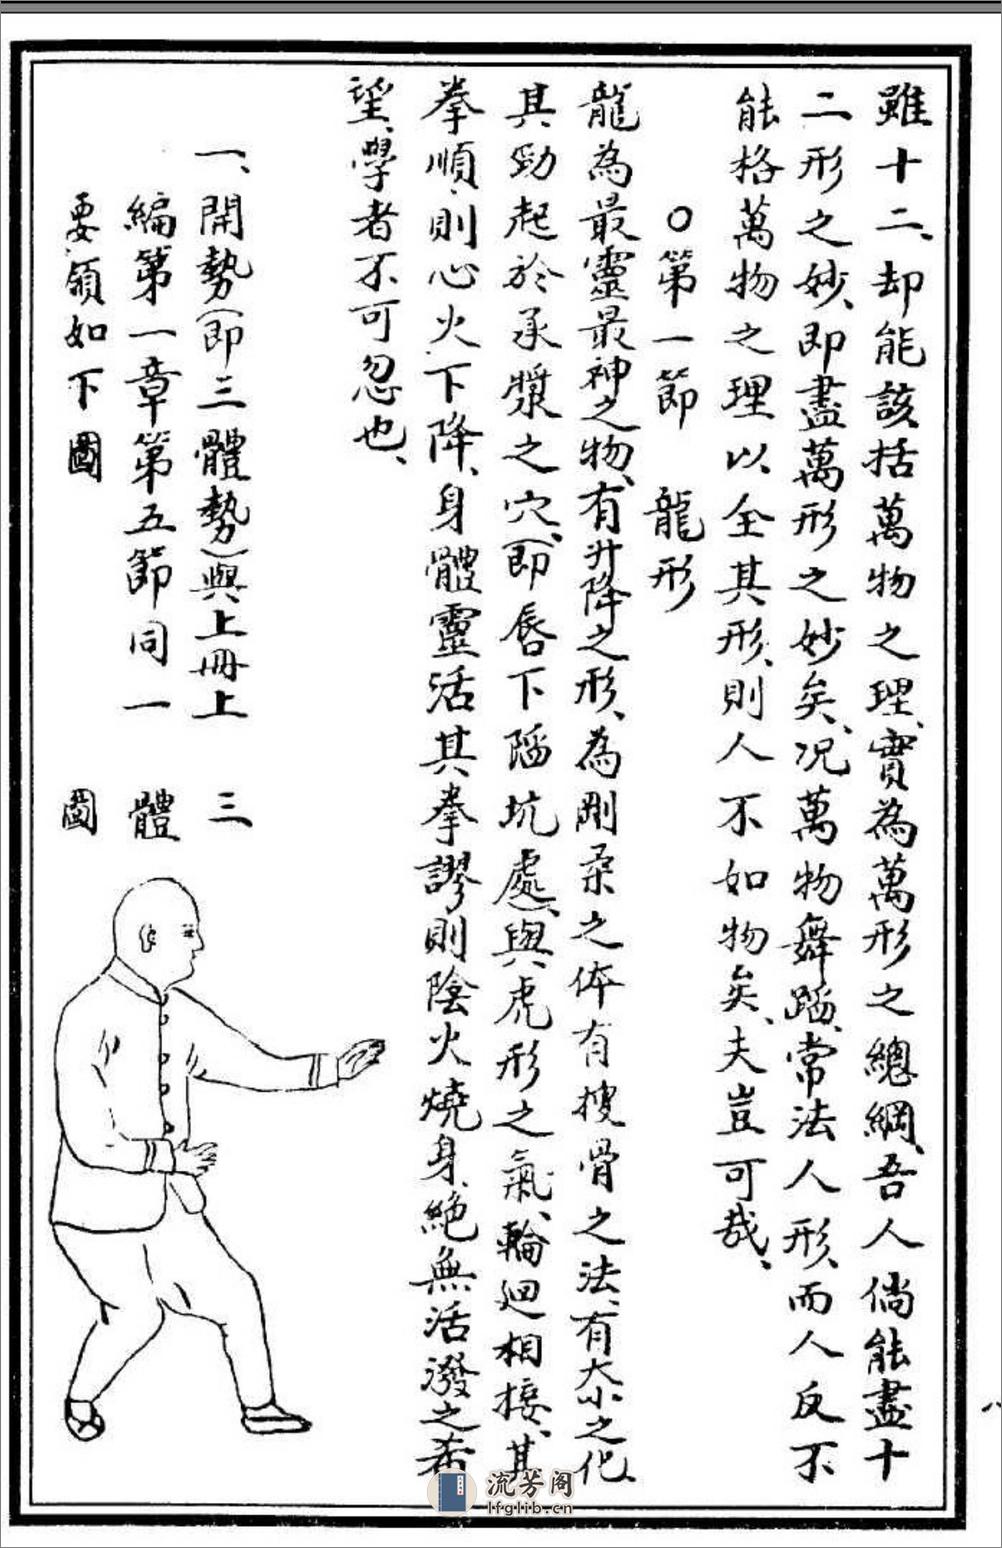 雖十二、却能該括萬物之理、實為萬形之總綱、吾人倘能盡十
二形之妙、即盡萬形之妙矣、况萬物舞蹈、常法人形、而人反不
能格萬物之理以全其形、則人不如物矣、夫豈可哉、
〇第一節 龍形
龍為最靈最神之物、有升降之形、為剛柔之体有搜骨之法、有大小之化、
其勁起於承漿之穴、(即唇下陷坑處)、與虎形之氣、輪迴相接、其
拳順、則心火下降、身體靈活其拳謬則陰火燒身、絶無活潑之希
望、學者不可忽也、
一、開勢(即三體勢)與上冊上
編第一章第五節同一
要領如下圖
三
體
圖
八
流芳阁
lfglib.cn